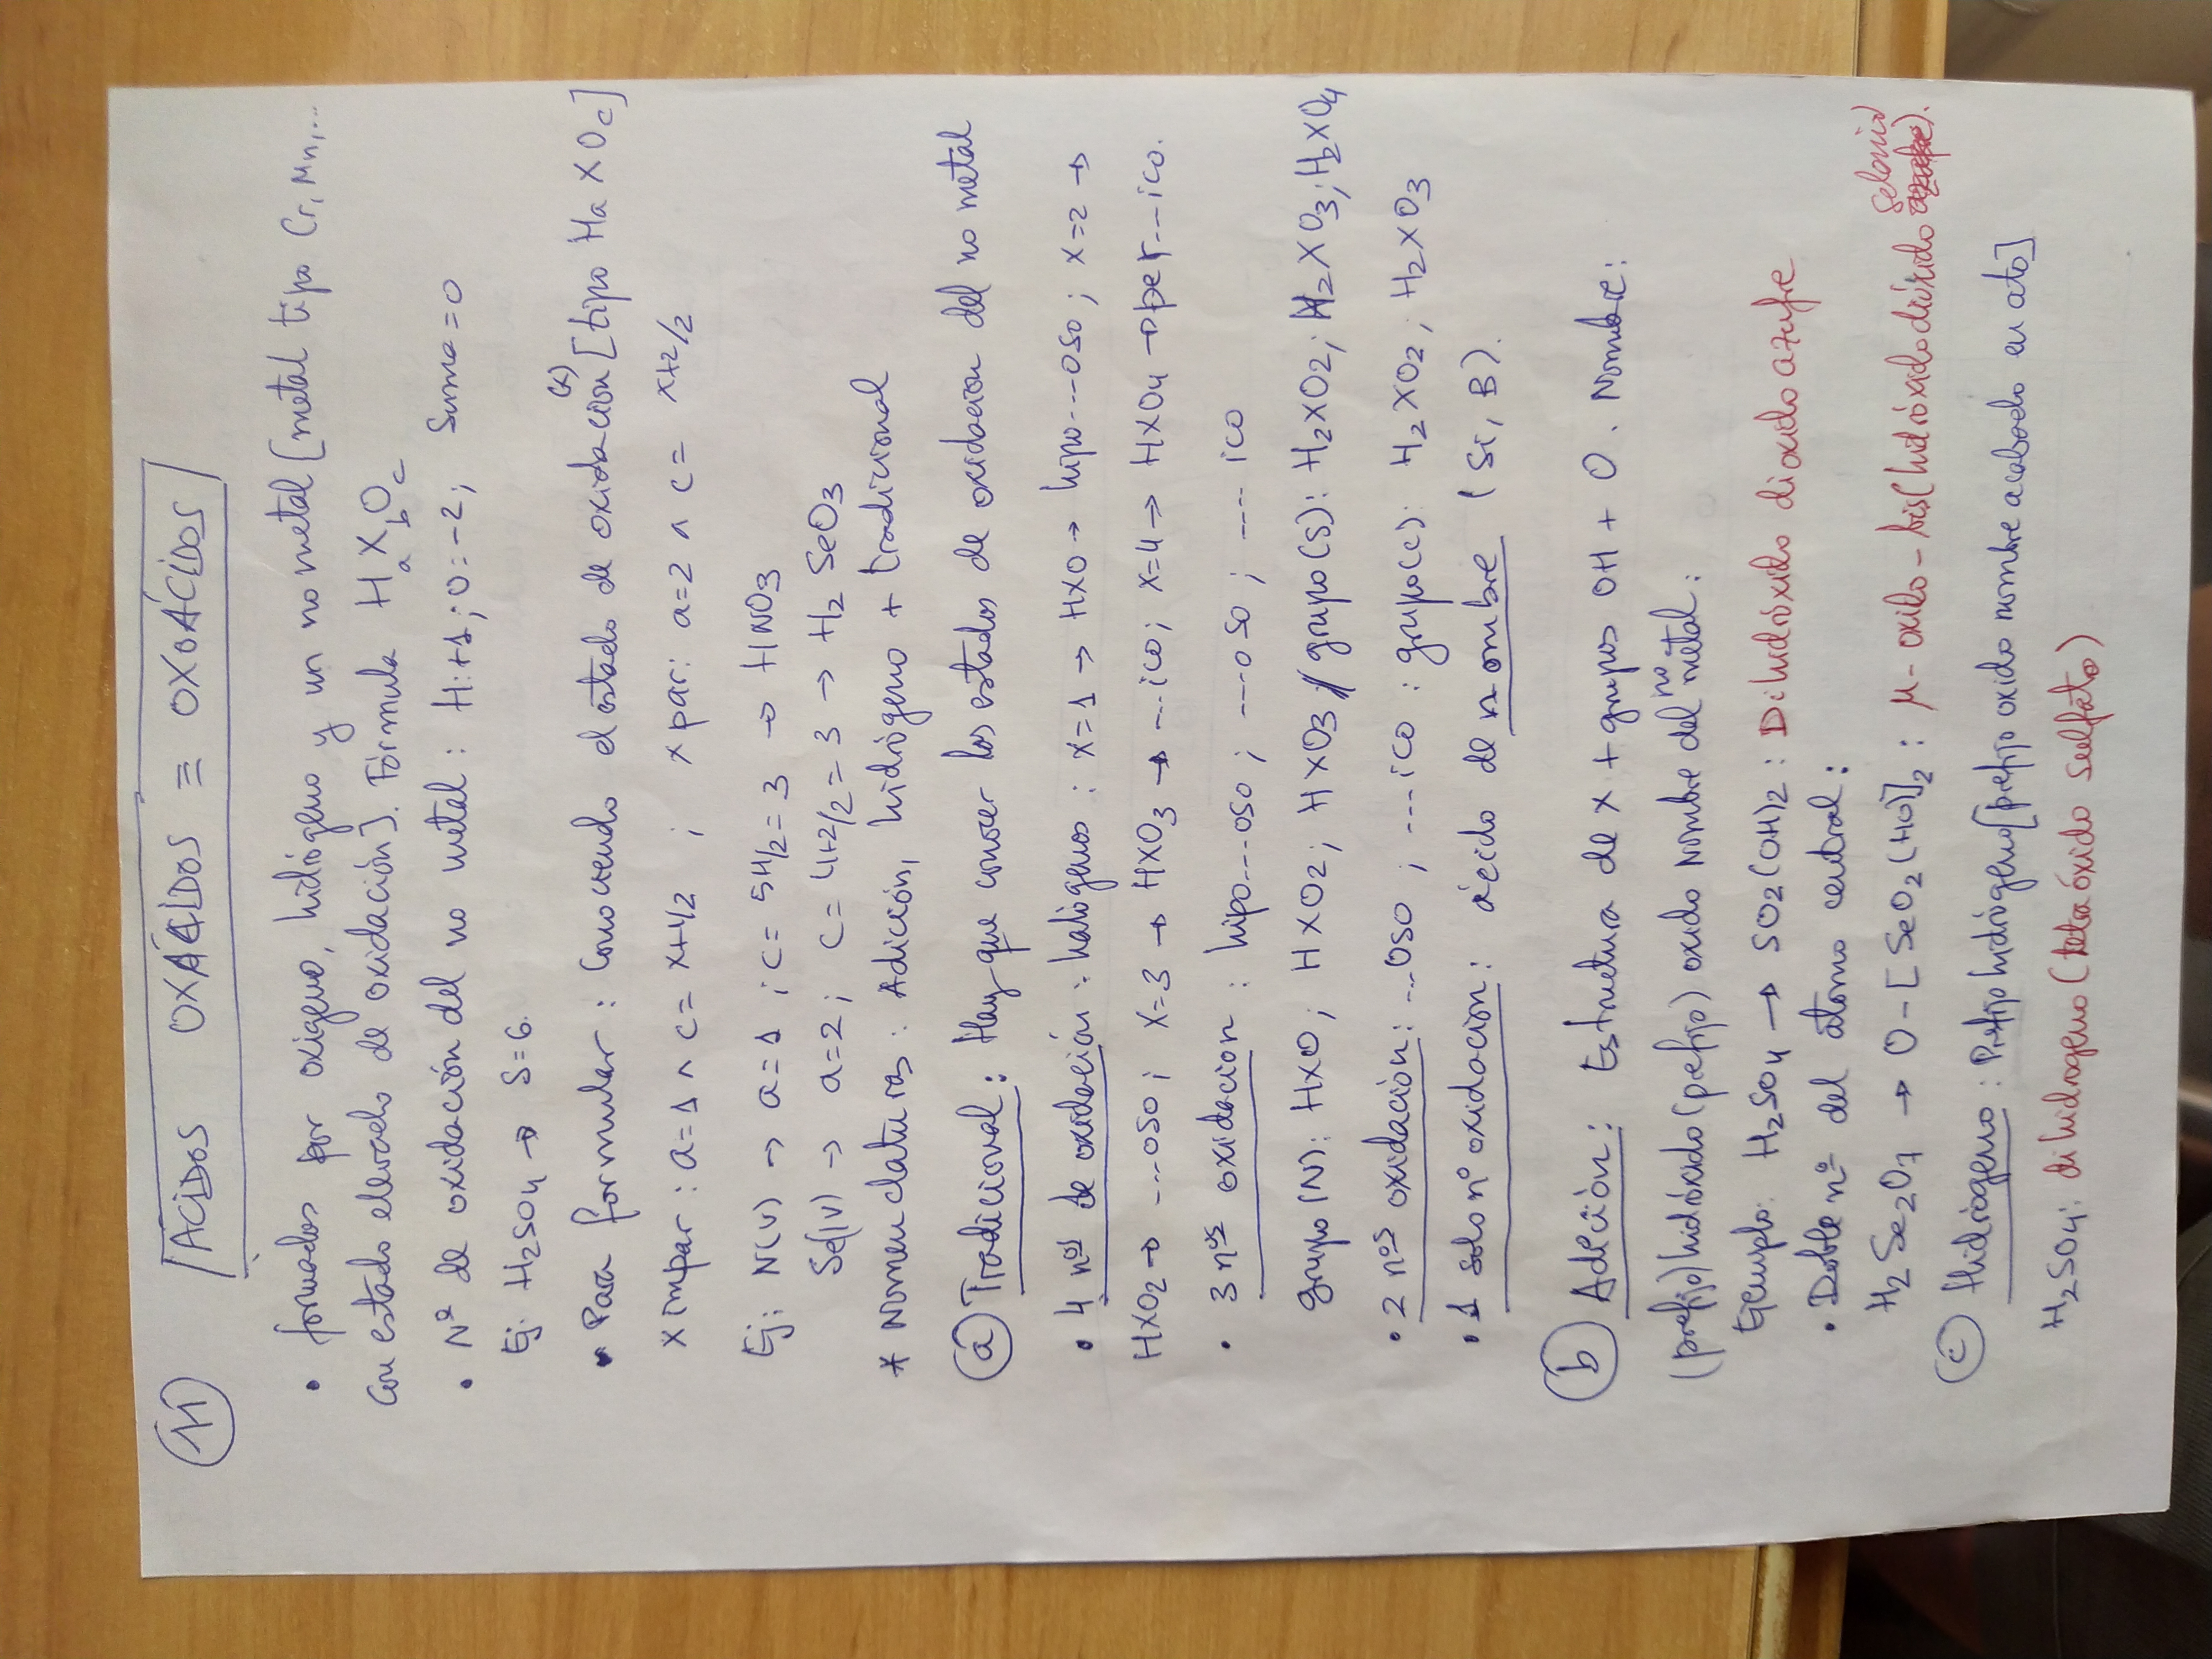 11 ACIDOS OXÁCIDOS ≡ OXOÁCIDOS
• formados por oxigeno, hidrógeno y un no metal [metal tipo Cr, Mn,...
con estado elevado de oxidación]. Fórmula HaXbOc
• Nº de oxidación del no metal : H:+1 ; O:-2 ; Suma=0
Ej: H2SO4 → S=6.
• Para formular : Conociendo el estado de oxidación (x) [tipo Ha X Oc]
x impar : a=1 ∧ c= x+1/2 ; x par: a=2 ∧ c= x+2/2
Ej: N(V) → a=1 ; c= 5+1/2=3 → HNO3
Se(IV) → a=2 ; c= 4+2/2=3 → H2SeO3
* Nomenclaturas : Adición, hidrógeno + tradicional
a Tradicional : Hay que conocer los estados de oxidacion del no metal
• 4 nos de oxidación : halógenos : x=1 → HXO → hipo...oso ; x=2 →
HXO2 → ...oso ; x=3 → HXO3 → ...ico ; x=4 → HXO4 → per...ico.
• 3 nos oxidacion : hipo...oso ; ...oso ; .... ico
grupo(N): HXO ; HXO2 ; HXO3 // grupo(S): H2XO2 ; H2XO3 ; H2XO4
• 2 nos oxidación : ...oso ; ...ico : grupo(C): H2XO2 ; H2XO3
• 1 solo nº oxidacion : ácido de nombre (Si, B).
b Adeción : Estructura de x + grupos OH + O. Nombre:
(prefijo)hidróxido(prefijo) oxido nombre del no metal :
Ejemplo: H2SO4 → SO2(OH)2 : Dihidróxido dioxido azufre
• Doble nº del atomo central :
H2Se2O7 → O-[SeO2(HO)]2 : μ-oxido-bis(hidróxidodióxido azufre selenio).
c Hidrógeno : Prefijo hidrógeno[prefijo oxido nombre acabado en ato]
H2SO4: dihidrogeno(tetraóxido sulfato)